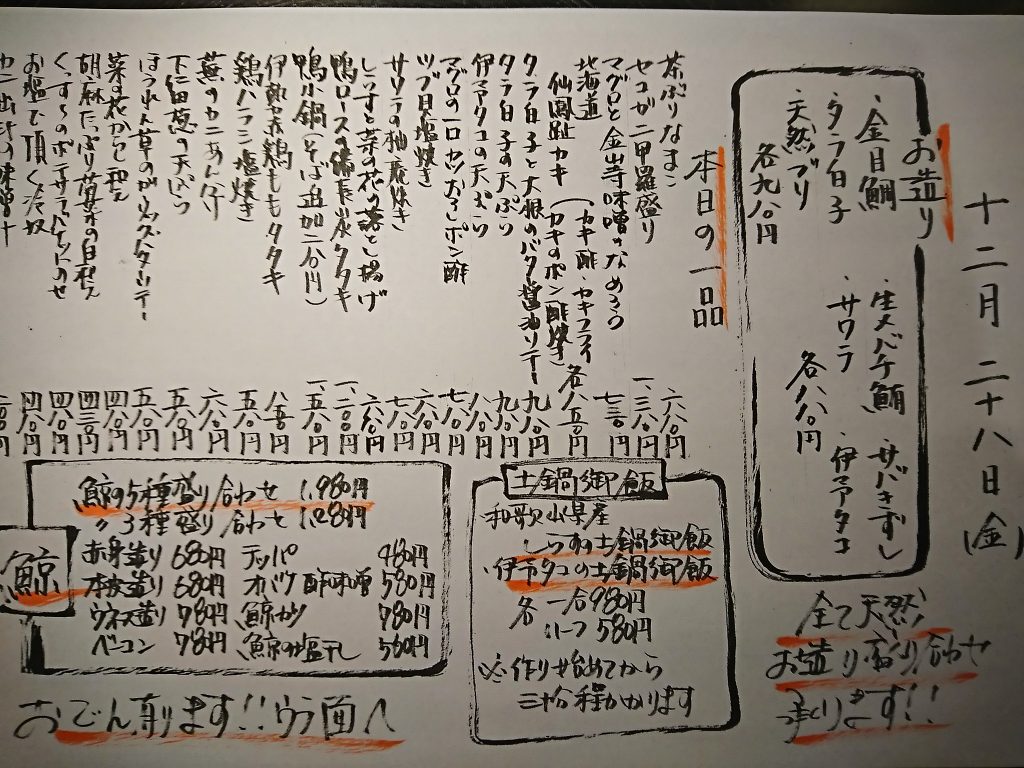 十二月二十八日(金)
お造り
・金目鯛
・生メバチ鮪
・サバきずし
・タラ白子
・サワラ
・伊予タコ
・天然ブリ
各九八〇円
各八八〇円
全て天然
お造り盛り合わせ
承ります!!
本日の一品
茶ぶりなまこ 六八〇円
セコガニ甲羅盛り 一、三八〇円
マグロと金山寺味噌のなめろう 七三〇円
北海道
仙鳳趾カキ(カキ酢・カキフライ
(カキのポン酢焼き 各八五〇円
タラ白子と大根のバタ醤油ソテー 九八〇円
タラ白子の天ぷら 九八〇円
伊予タコの天ぷら 八八〇円
マグロの一口カツおろしポン酢 七八〇円
ツブ貝塩焼き 六八〇円
サワラの柚庵焼き 七八〇円
しらすと菜の花の落とし揚げ 六八〇円
鴨ロースの備長炭タタキ 一、二八〇円
鴨小鍋(そば追加二八〇円) 一、五八〇円
伊勢赤鶏ももタタキ 八五〇円
鶏ハラミ塩焼き 五八〇円
蕪のカニあんかけ 六八〇円
下仁田葱の天ぷら 五八〇円
ほうれん草のガーリックバターソテー 五八〇円
菜の花からし和え 四八〇円
胡麻たっぷり 白和え 四三〇円
くずし のポテサラ バケットのせ 四八〇円
お塩で頂く冷奴 四八〇円
カニ出汁の味噌汁
土鍋御飯
和歌山県産
しらすの土鍋御飯
・伊予タコの土鍋御飯
各 一合980円
ハーフ580円
※作り始めてから
三十分程かかります
鯨
鯨の5種盛り合わせ 1,980円
〃3種盛り合わせ 1,280円
赤身造り 680円
テッパ 480円
本皮造り 680円
オバケ酢味噌 580円
ウネス造り 980円
鯨カツ 980円
ベーコン 980円
鯨の塩干し 580円
おでん有ります!!ウラ面へ